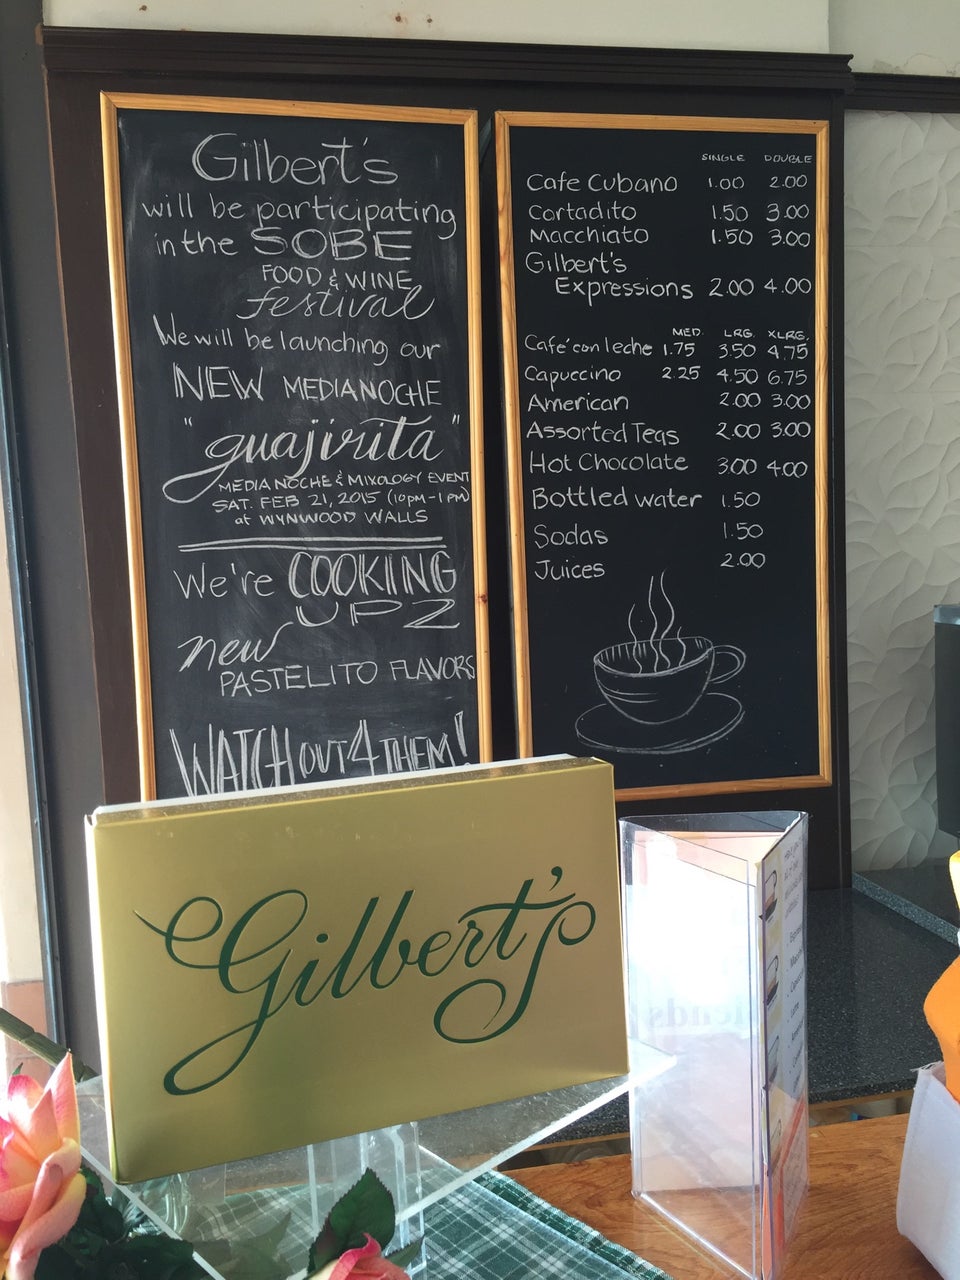 Gilbert's
will be participating
in the SOBE
FOOD & WINE
festival
We will be launching our
NEW MEDIANOCHE
"guajirita"
MEDIA NOCHE & MIXOLOGY EVENT
SAT. FEB 21, 2015 (10PM-1PM)
at WYNWOOD WALLS
We're COOKING
UPZ
new
PASTELITO FLAVORS
WATCH OUT 4 THEM!
SINGLE DOUBLE
Cafe Cubano 1.00 2.00
Cortadito 1.50 3.00
Macchiato 1.50 3.00
Gilbert's
Expressions 2.00 4.00
MED. LRG. XLRG.
Café con leche 1.75 3.50 4.75
Capuccino 2.25 4.50 6.75
American 2.00 3.00
Assorted Teas 2.00 3.00
Hot Chocolate 3.00 4.00
Bottled water 1.50
Sodas 1.50
Juices 2.00
Gilbert's